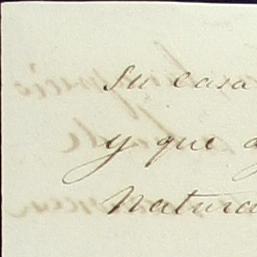 su casa
y que
Natura